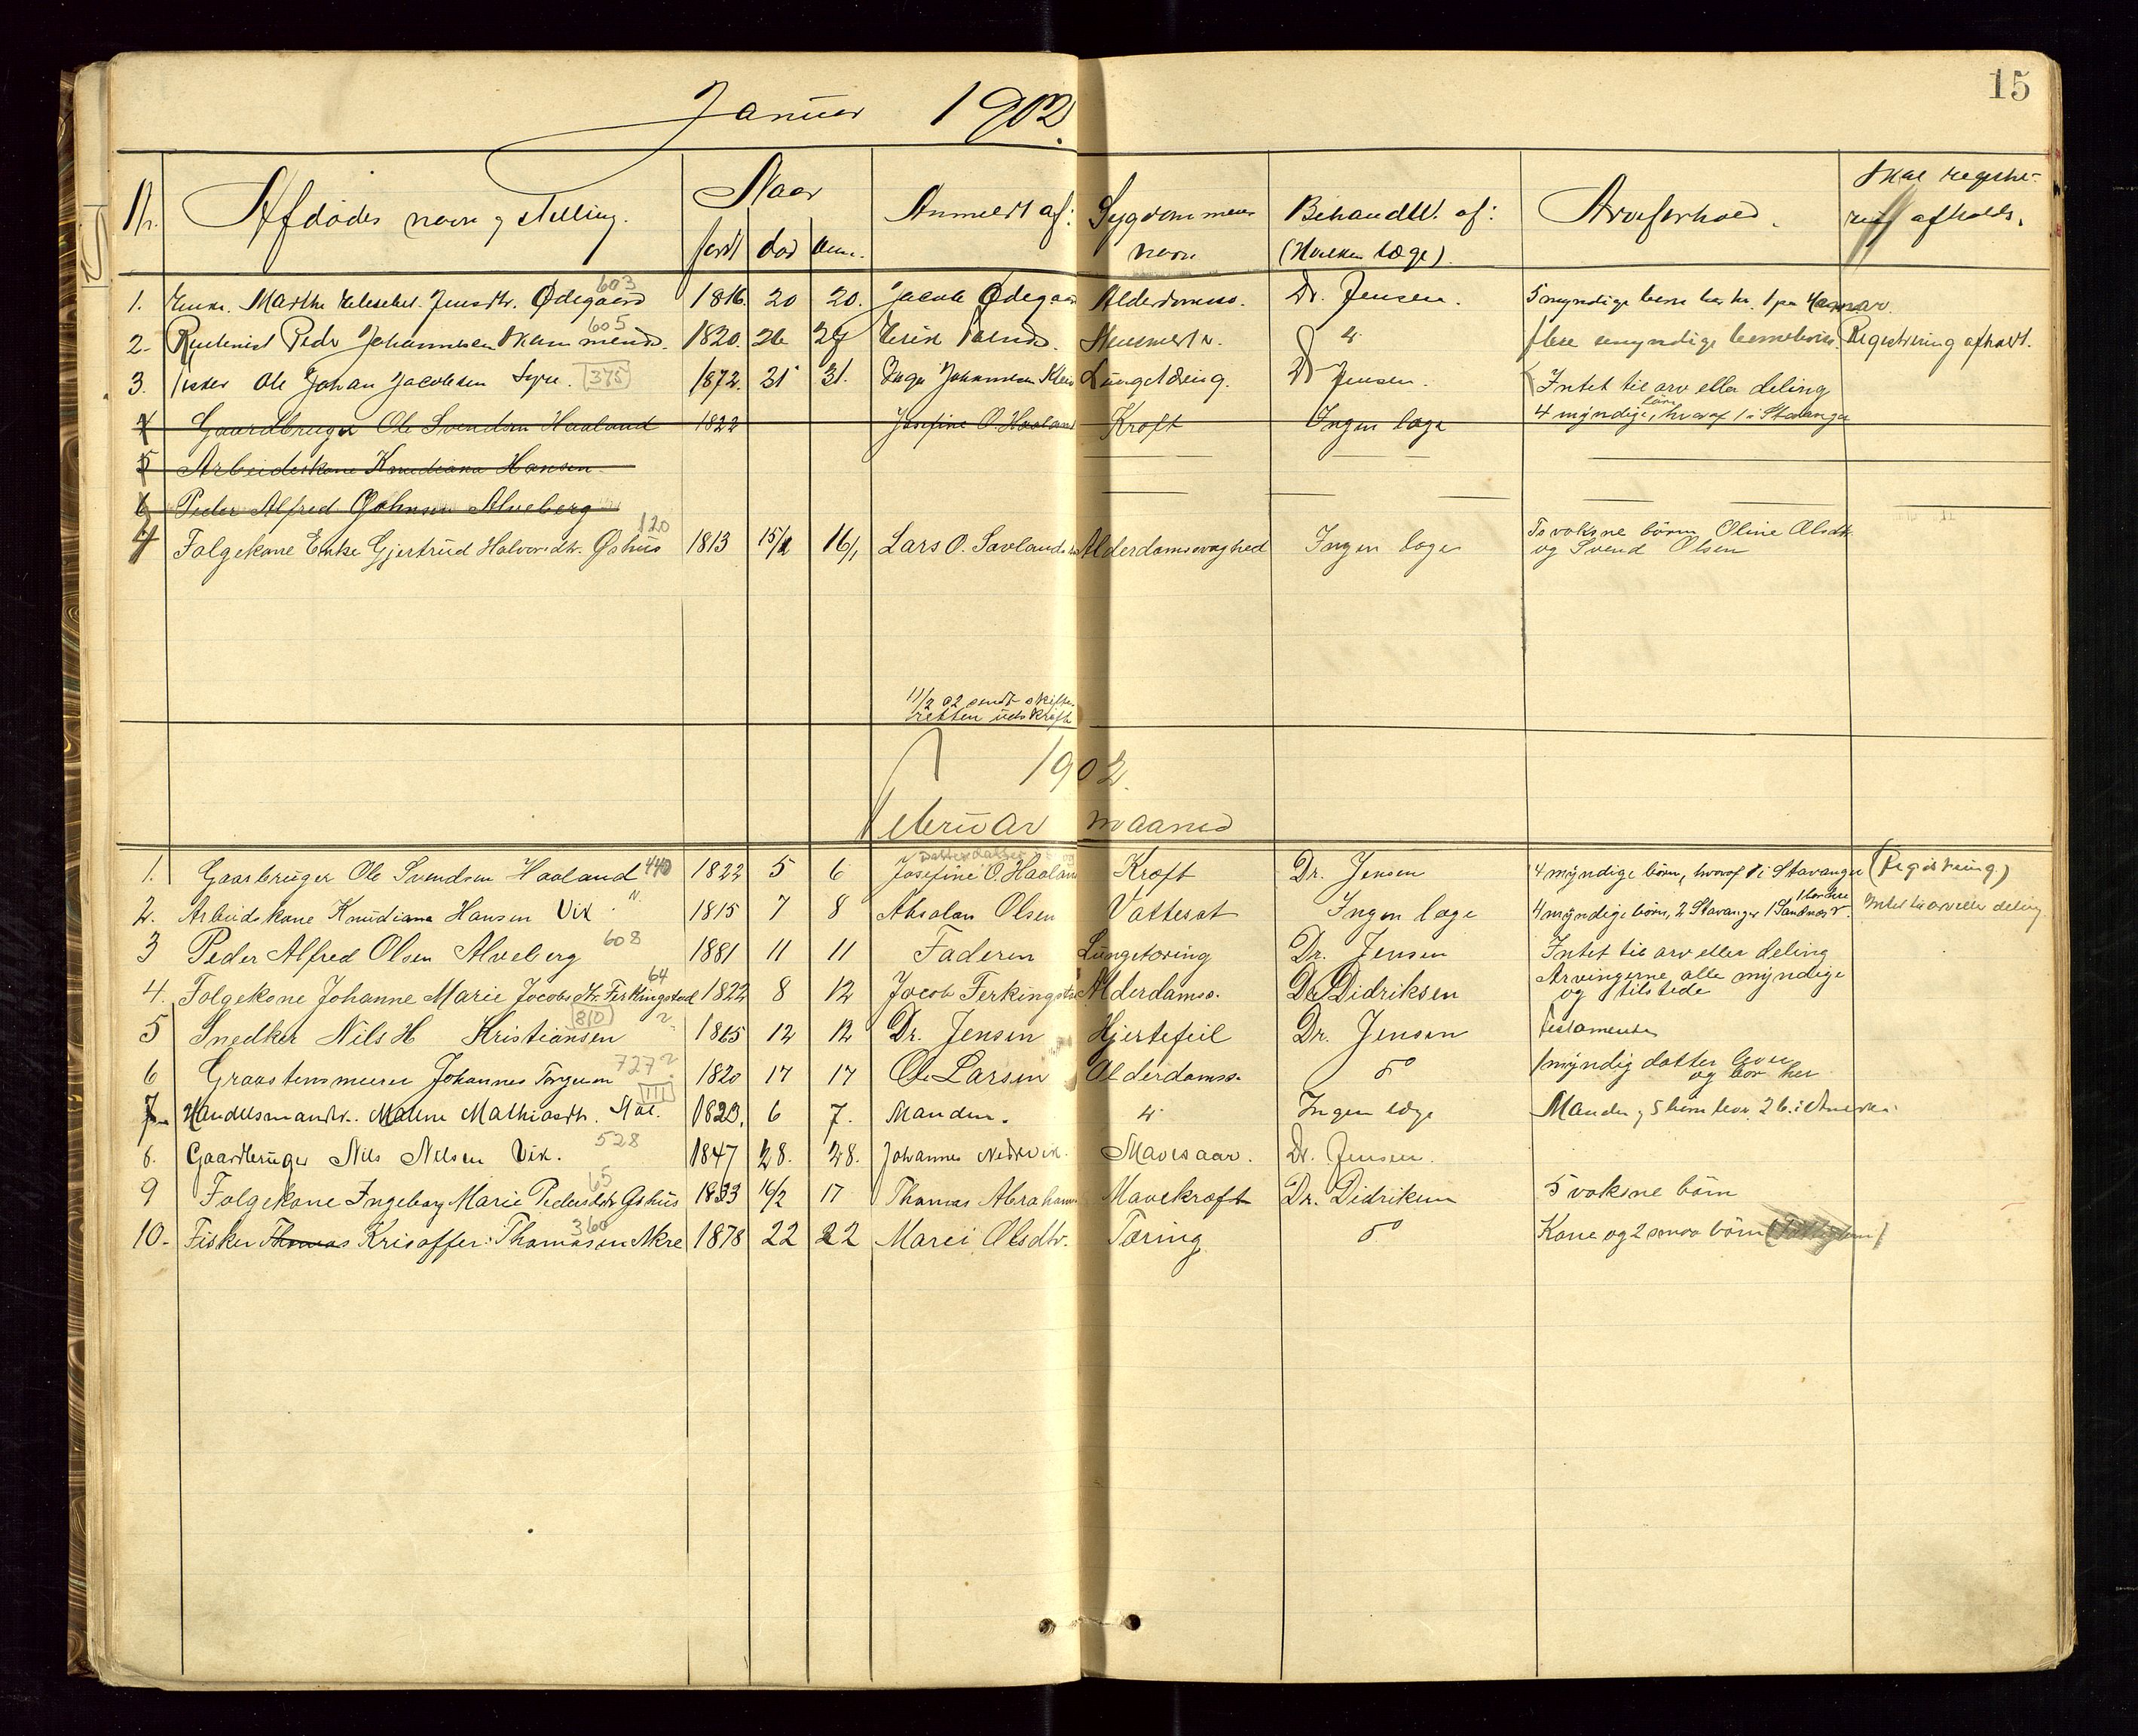 15
Januar 1902.
Nr. Afdødes navn og stilling. Naar Anmeldt af: Sygdommens navn Behandlet af: (Hvilken læge). Arveforhold. Skal registrering afholdes.
født død anm.
603
1. Enke. Marthe Jensdtr. Ødegaard 1816. 20 20. Jacob Ødegaard Alderdomss. Dr. Jensen. 5 myndige børn
605
2. Peder Johannesen 1820. 26 27 Registrering afholdt.
3. Fisker Ole Johan Jacobsen Syre. 375 1872. 31 31. Lungetæring. Dr Jensen. Intet til arv eller deling
4 Gaardbruger Ole Svendsen Haaland 1822 Josefine O. Haaland Kræft Ingen læge 4 myndige børn, hvoraf 1 i Stavanger
5 Arbeidskone Knudiana Hansen
6 Peder Alfred Johnsen Alveberg
120
4 Folgekone Enke Gjertrud Halvorsdtr. Øshus 1813 15/1 16/1 Lars O. Sævland Alderdomssvaghed Ingen læge To voksne börn Oline Olsdtr. og Svend Olsen
11/2 02 sendt skifte-
retten udskrift
1902.
Februar maaned
Datterdatter
1. Gaarbruger Ole Svendsen Haaland 440 1822 5 6 Josefine O. Haaland Kræft Dr. Jensen 4 myndige börn, hvoraf 1 i Stavanger (Registrering)
2. Arbeidskone Knudiana Hansen Vik 1815 7 8 Absalon Olsen Vattersot Ingen læge 4 myndige börn, 2 Stavanger 1 Sandnes 1 bor her Intet til arv eller deling
3 Peder Alfred Olsen Alveberg 608 1881 11 11 Faderen Lungetæring Dr. Jensen Intet til arv eller deling
64
4. Folgekone Johanne Marie Jocobsdtr. Ferkingstad 1822 8 12 Jacob Ferkingstad Alderdomss. Dr. Didriksen Arvingerne alle myndige og tilstede
810
5 Snedker Nils H Kristiansen 1865 12 12 Dr. Jensen Hjertefeil Dr. Jensen Testamente
6 Graastensmurer Johannes Torgersen 727? 1820 17 17 Ole Larsen Alderdomss. do 1 myndig datter lever og bor her
III
7. Handelsmandsk. Malene Mathiasdtr. 1823. 6 7. Manden. Ingen læge Manden og 5 børn lever 2 b. i Amerika.
528
8. Gaardbruger Nils Nilsen Vik. 1847 28. 28. Johannes Nedrevik. Mavesaar. Dr. Jensen.
65
9 Folgekone Ingeborg Marie Pedersdtr Øshus 1833 16/2 17 Thomas Abraham Mavekræft Dr. Didriksen 5 voksne börn
360
10. Fisker Thomas Krisoffer Thomassen Akre 1878 22 22 Marei Olsdtr. Tæring do Kone og 2 smaa börn